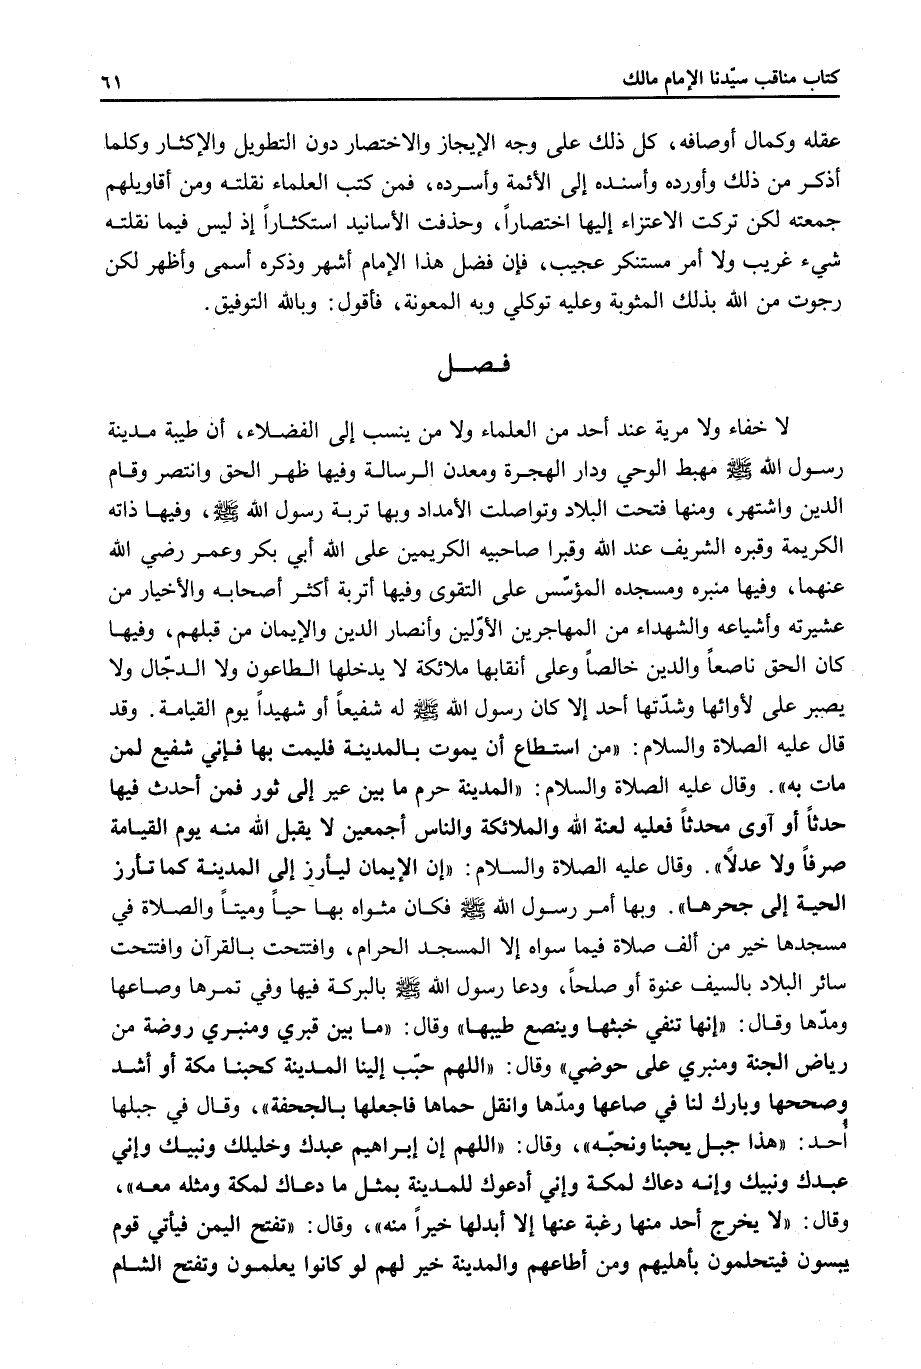 كتاب مناقب سيّدنا الإمام مالك ٦١
عقله وكمال أوصافه، كل ذلك على وجه الإيجاز والاختصار دون التطويل والإكثار وكلما
أذكر من ذلك وأورده وأسنده إلى الأئمة وأسرده، فمن كتب العلماء نقلته ومن أقاويلهم
جمعته لكن تركت الاعتزاء إليها اختصاراً، وحذفت الأسانيد استكثاراً إذ ليس فيما نقلته
شيء غريب ولا أمر مستنكر عجيب، فإن فضل هذا الإمام أشهر وذكره أسمى وأظهر لكن
رجوت من الله بذلك المثوبة وعليه توكلي وبه المعونة، فأقول: وبالله التوفيق.
فصل
لا خفاء ولا مرية عند أحد من العلماء ولا من ينسب إلى الفضلاء، أن طيبة مدينة
رسول الله ﷺ مهبط الوحي ودار الهجرة ومعدن الرسالة وفيها ظهر الحق وانتصر وقام
الدين واشتهر، ومنها فتحت البلاد وتواصلت الأمداد وبها تربة رسول الله ﷺ، وفيها ذاته
الكريمة وقبره الشريف عند الله وقبرا صاحبيه الكريمين على الله أبي بكر وعمر رضي الله
عنهما، وفيها منبره ومسجده المؤسّس على التقوى وفيها أتربة أكثر أصحابه والأخيار من
عشيرته وأشياعه والشهداء من المهاجرين الأوّلين وأنصار الدين والإيمان من قبلهم، وفيها
كان الحق ناصعاً والدين خالصاً وعلى أنقابها ملائكة لا يدخلها الطاعون ولا الدجّال ولا
يصبر على لأوائها وشدّتها أحد إلا كان رسول الله ﷺ له شفيعاً أو شهيداً يوم القيامة. وقد
قال عليه الصلاة والسلام: «من استطاع أن يموت بالمدينة فليمت بها فإني شفيع لمن
مات به». وقال عليه الصلاة والسلام: «المدينة حرم ما بين عير إلى ثور فمن أحدث فيها
حدثاً أو آوى محدثاً فعليه لعنة الله والملائكة والناس أجمعين لا يقبل الله منه يوم القيامة
صرفاً ولا عدلاً». وقال عليه الصلاة والسلام: «إن الإيمان ليأرز إلى المدينة كما تأرز
الحية إلى جحرها». وبها أمر رسول الله ﷺ فكان مثواه بها حياً وميتاً والصلاة في
مسجدها خير من ألف صلاة فيما سواه إلا المسجد الحرام، وافتتحت بالقرآن وافتتحت
سائر البلاد بالسيف عنوة أو صلحاً، ودعا رسول الله ﷺ بالبركة فيها وفي تمرها وصاعها
ومدّها وقال: «إنها تنفي خبثها وينصع طيبها» وقال: «ما بين قبري ومنبري روضة من
رياض الجنة ومنبري على حوضي» وقال: «اللهم حبّب إلينا المدينة كحبنا مكة أو أشد
وصححها وبارك لنا في صاعها ومدّها وانقل حماها فاجعلها بالجحفة»، وقال في جبلها
أُحد: «هذا جبل يحبنا ونحبّه»، وقال: «اللهم إن إبراهيم عبدك وخليلك ونبيك وإني
عبدك ونبيك وإنه دعاك لمكة وإني أدعوك للمدينة بمثل ما دعاك لمكة ومثله معه»،
وقال: «لا يخرج أحد منها رغبة عنها إلا أبدلها خيراً منه»، وقال: «تفتح اليمن فيأتي قوم
يبسون فيتحلمون بأهليهم ومن أطاعهم والمدينة خير لهم لو كانوا يعلمون وتفتح الشام